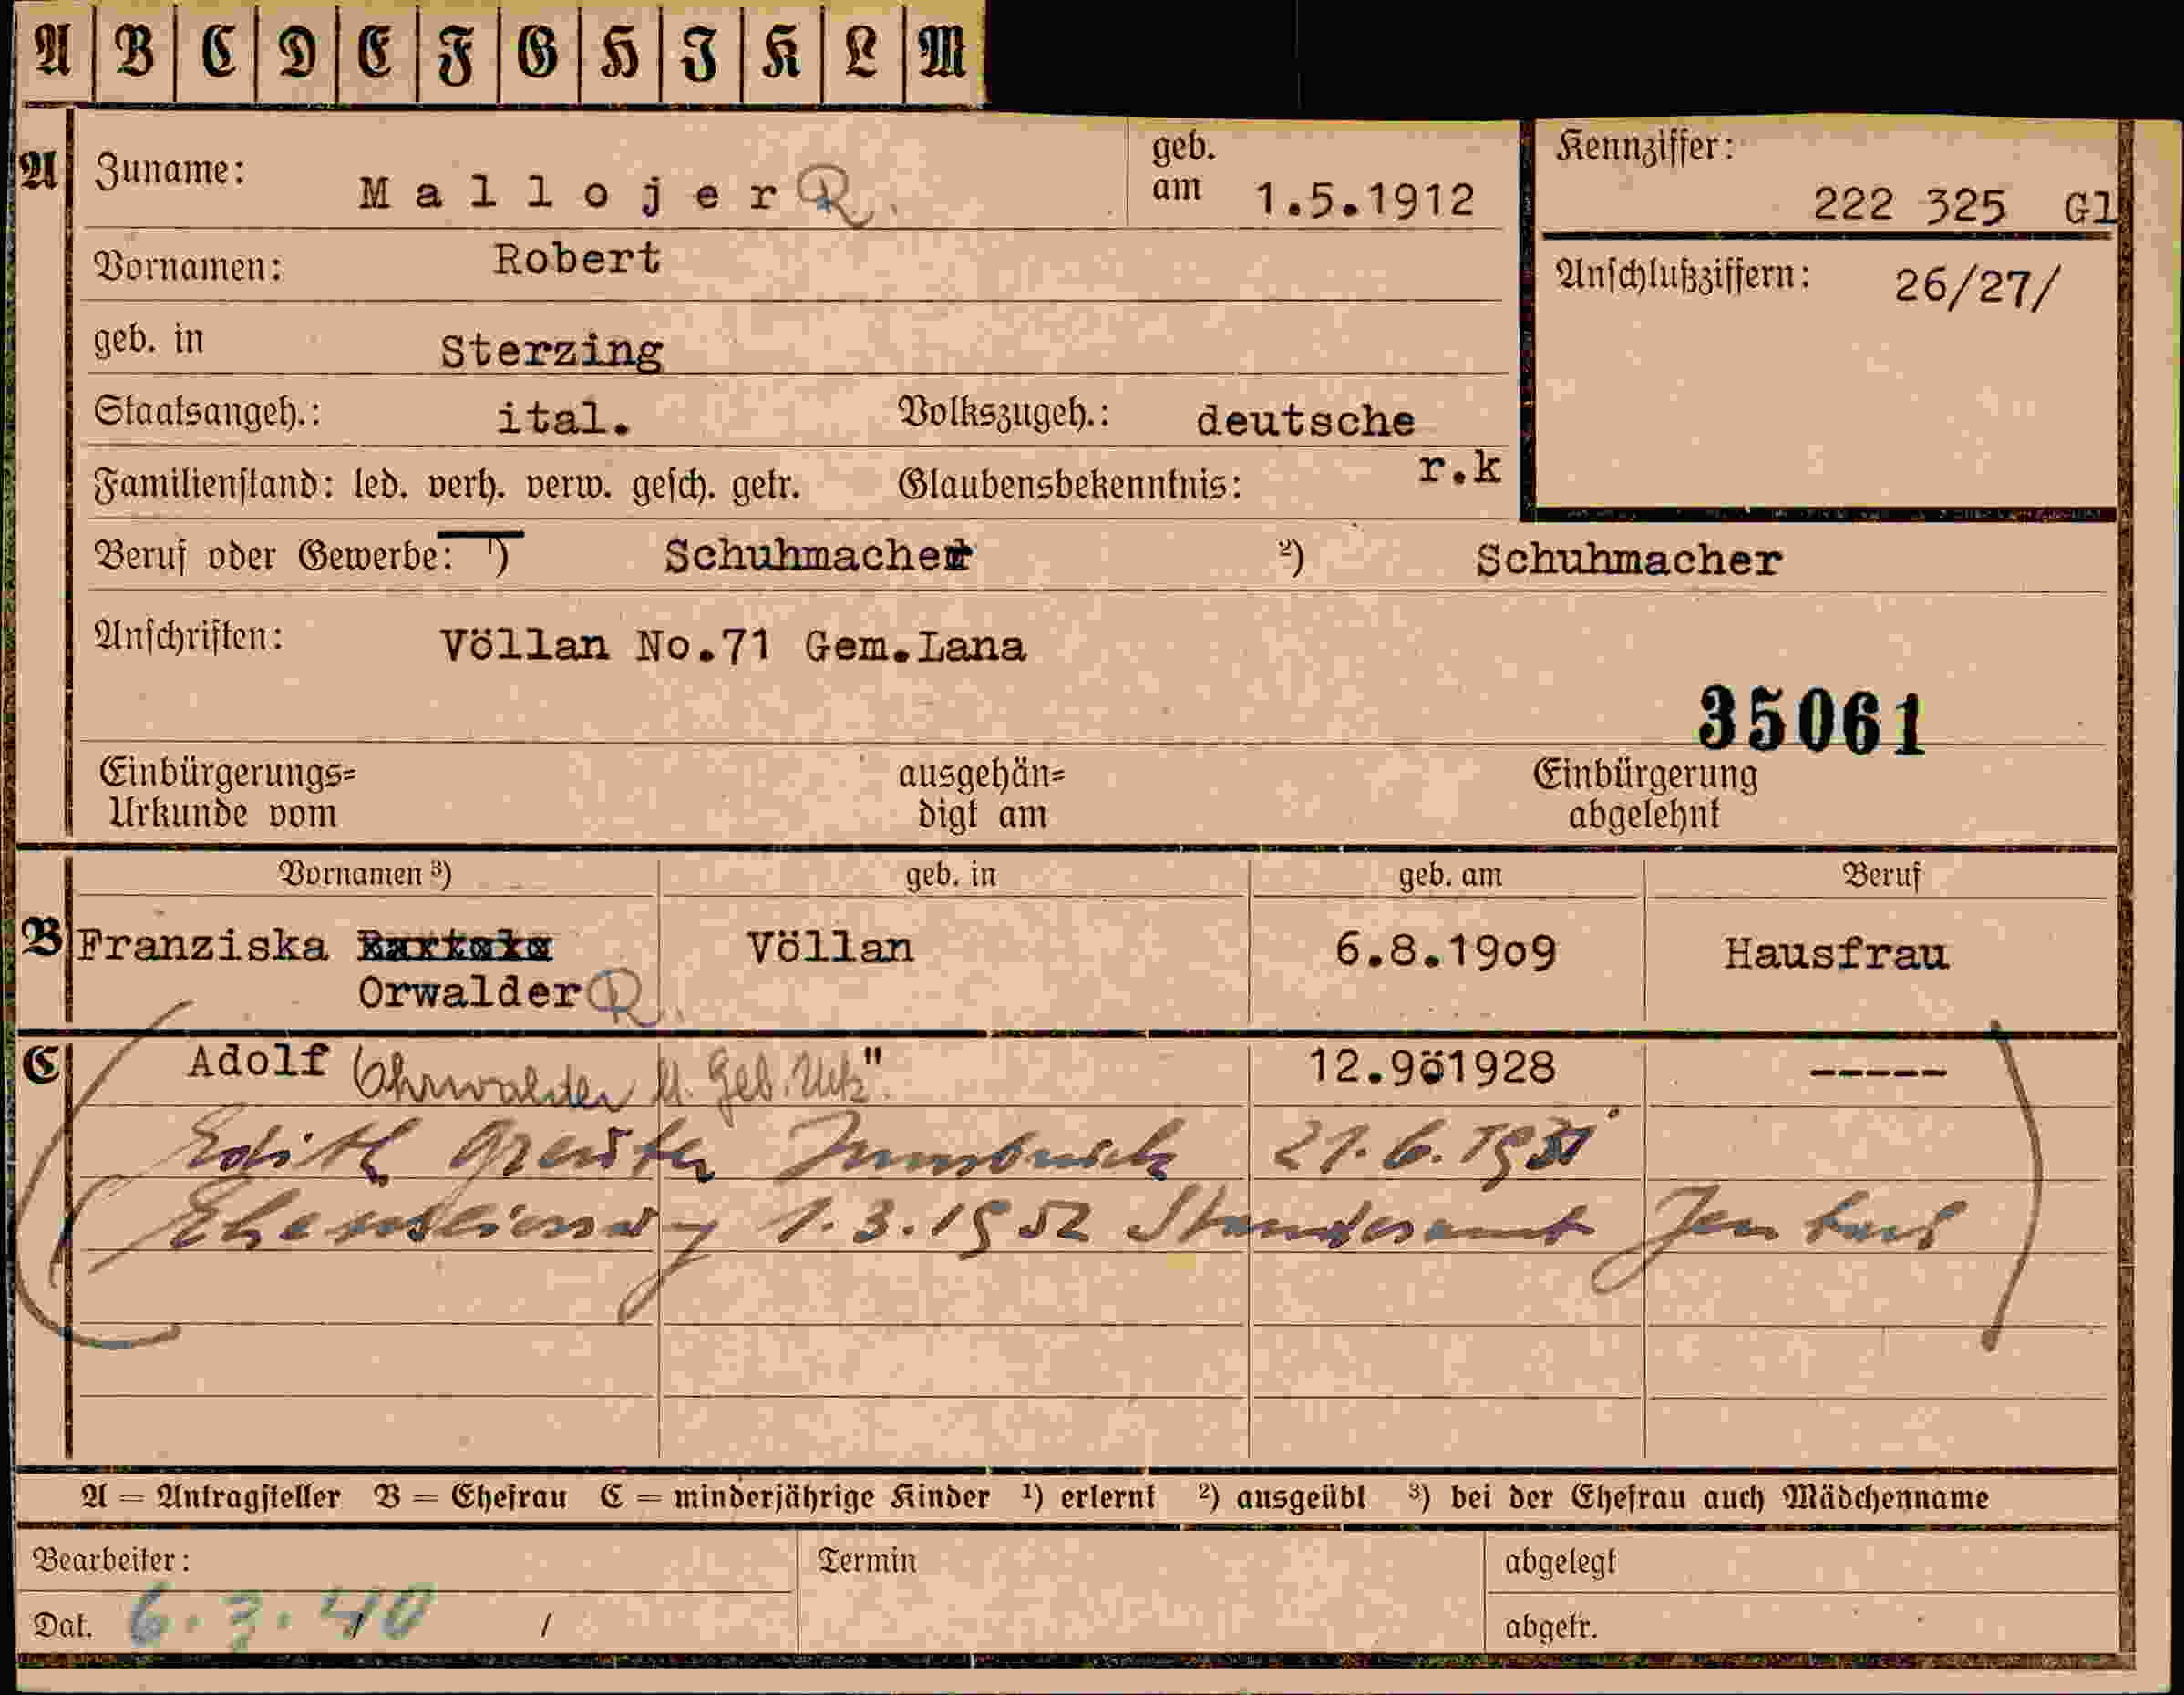 A B C D E F G H I K L M
A Zuname: Mallojer R. geb. am 1.5.1912 Kennziffer: 222 325 Gl
Vornamen: Robert Anschlußziffern: 26/27/
geb. in Sterzing
Staatsangeh.: ital. Volkszugeh.: deutsche
Familienstand: led. verh. verw. gesch. getr. Glaubensbekenntnis: r.k
Beruf oder Gewerbe: 1) Schuhmacher 2) Schuhmacher
Anschriften: Völlan No.71 Gem.Lana
35061
Einbürgerungs= ausgehän= Einbürgerung
Urkunde vom digt am abgelehnt
Vornamen 3) geb. in geb. am Beruf
B Franziska Völlan 6.8.19o9 Hausfrau
Orwalder R.
C Adolf Ohrwalder " 12.9ö1928 -----
Edith Greuter Innsbruck 21.6.1931
Eheschliessung 1.3.1952 Standesamt Jenbach
A = Antragsteller B = Ehefrau C = minderjährige Kinder 1) erlernt 2) ausgeübt 3) bei der Ehefrau auch Mädchenname
Bearbeiter: Termin abgelegt
Dat. 6.3.40 / / abgetr.